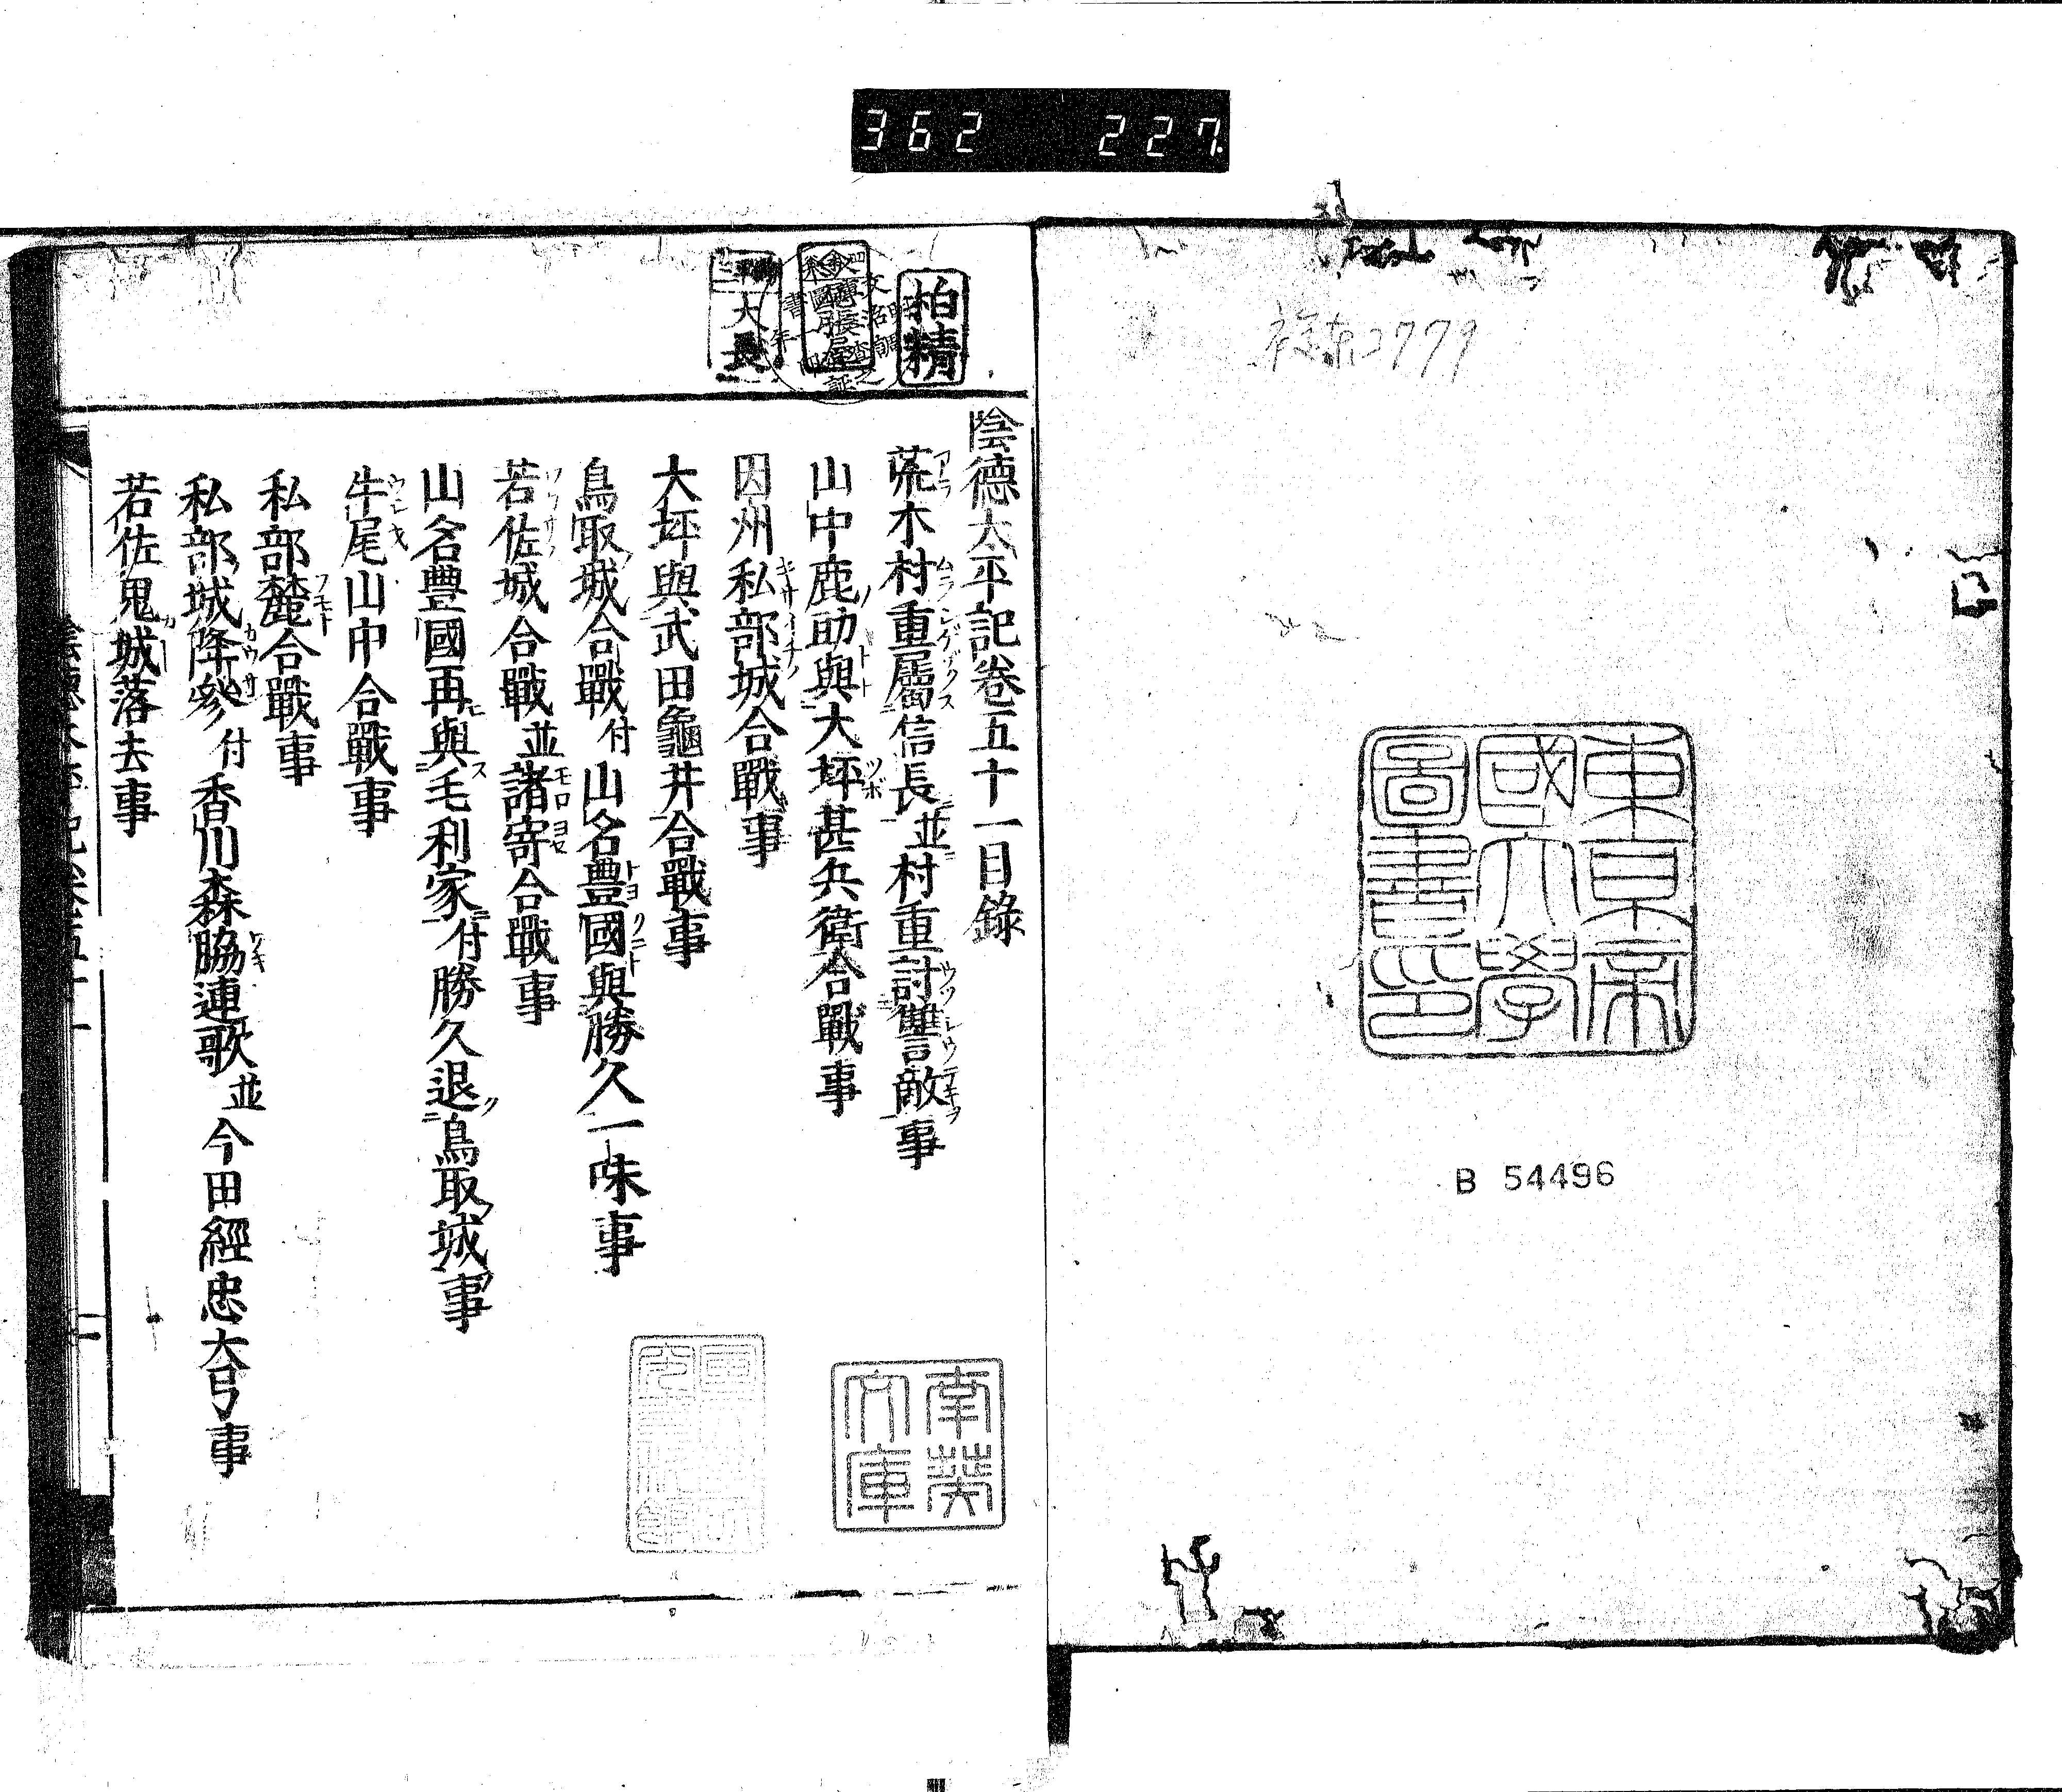 362 227.
柏精
大長
2779
東京帝
國大學
圖書印
B 54496
陰德太平記卷五十一目錄
荒木村重屬信長並村重討讐敵事
山中鹿助與大坪甚兵衛合戰事
因州私部城合戰事
大坪與武田龜井合戰事
鳥取城合戰付山名豊國與勝久一味事
若佐城合戰並諸寄合戰事
山名豊國再與毛利家付勝久退鳥取城事
牛尾山中合戰事
私部麓合戰事
私部城降參付香川森脇連歌並今田經忠大弓事
若佐鬼城落去事
南葵
文庫